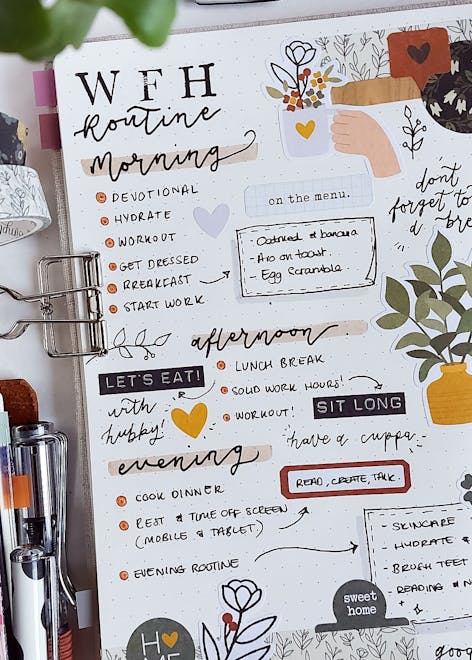 WFH
Routine
Morning
DEVOTIONAL
HYDRATE
WORKOUT
GET DRESSED
BREAKFAST
START WORK
on the menu.
- Oatmeal & banana
- Avo on toast
- Egg Scramble
don't
forget to
a
afternoon
LUNCH BREAK
SOLID WORK HOURS!
WORKOUT!
LET'S EAT!
with
hubby!
SIT LONG
have a cuppa
evening
COOK DINNER
REST & TIME OFF SCREEN
(MOBILE & TABLET)
EVENING ROUTINE
READ, CREATE, TALK.
- SKINCARE
- HYDRATE &
- BRUSH TEET
- READING
sweet
home
HOME